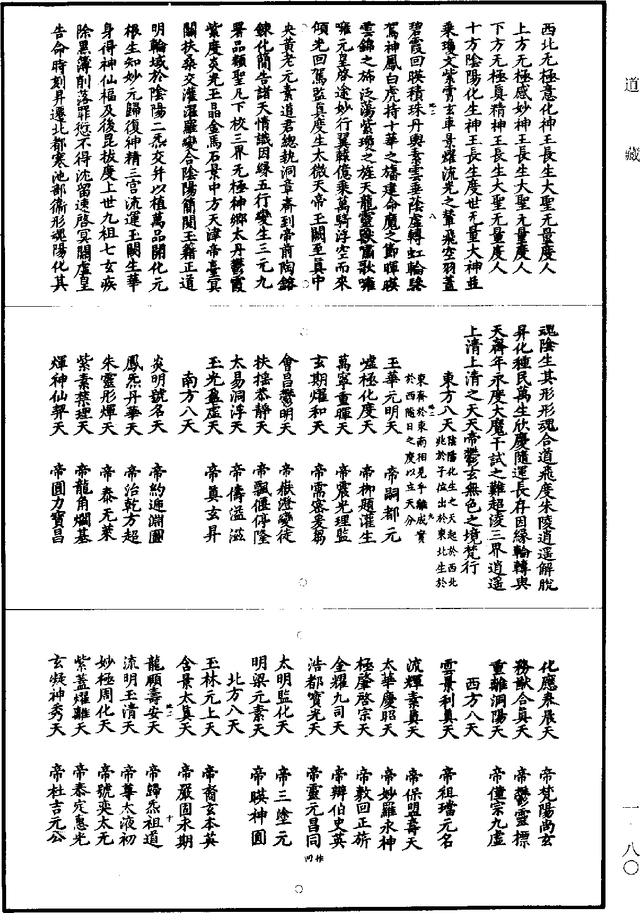 道藏
西北无極意化神王長生大聖无量度人
上方无極感妙神王長生大聖无量度人
下方无極真精神王長生大聖无量度人
十方陰陽化生神王長生度世无量大神並
乘瓊文紫霄玄車景燿流光之輦飛空羽蓋
碧霞回暎積珠丹輿素雲垂陰虛轉虹輪
駕神鳳白虎持十華之旛建命魔之節暉暎
雲錦之旂泛蕩紫瓊之旌天龍靈獸嘯歌
元皇啓途妙行翼轅億乘萬騎浮空而來
傾光回駕監真度生太微天帝王闕至真中
央黃老元素道君總執洞章齎到帝前陶鎔
鍊化簡告諸天情識因緣五行變生三元九
署品類聖凡下校三界无極神鄉太丹鬱霞
紫度炎光玉晶金馬石景中方天津帝臺冥
關扶桑交灌濯羅變合陰陽簡閱玉籍正道
明輪域於陰陽二炁交并以植萬品開化元
根生知妙元歸復神精三宮流運玉闕生華
身得神仙福及後昆拔度上世九祖七玄疾
除黑簿削落罪愆不得沈留速啓冥關虛皇
告命時刻昇遷北都寒池部衛形魂陽化其
魂陰生其形形魂合道飛度朱陵逍遥解脫
昇化種民萬生欣慶隨運長存因緣輪轉與
天齊年永度大魔干試之難超淩三界逍遥
上清上清之天天帝鬱玄無色之境梵行
東方八天陰陽化生之天起於西北
北於子位出於東北生於
東齊於東南相見乎離成實
於西隨日之度以立天分
玉華元明天　帝嗣都元
虛極化度天　帝柳題灌生
萬寧重暉天　帝震光理監
玄期燿和天　帝需容爰
會昌鬱明天　帝嶽澄變徒
扶搖恭靜天　帝飄偃停隆
太易洞浮天　帝儔溢滋
玉光盈虛天　帝真玄昇
南方八天
炎明號名天　帝約迎淵圖
鳳炁丹華天　帝治乾方超
朱靈彤煇天　帝泰无萊
紫素禁理天　帝龍角爛基
煇神仙舉天　帝圓力寶昌
化應泰展天　帝梵陽尚玄
務猷合真天　帝鬱靈標
重離洞陽天　帝僮宗九虛
西方八天
雲景利真天　帝祖璫元名
波輝素真天　帝保盟壽天
太華慶昭天　帝妙羅永神
極肇啓宗天　帝敦回正旂
金耀九司天　帝辯伯史英
浩都寶光天　帝靈元昌同
太明監化天　帝三塗元
明梁元素天　帝暎神圓
北方八天
玉林元上天　帝裔玄本英
含景太真天　帝嚴固永期
龍願壽安天　帝歸炁祖道
流明玉清天　帝尊太液初
妙極周化天　帝號奕太元
紫蓋燿離天　帝泰定惠光
玄凝神秀天　帝杜吉元公
一·八〇